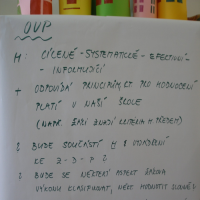 OVP
H: CÍLENÉ - SYSTEMATICKÉ - EFEKTIVNÍ -
- INFORMUJÍCÍ
+ ODPOVÍDÁ PRINCIPŮM, KT. PRO HODNOCENÍ
PLATÍ V NAŠÍ ŠKOLE
(NAPŘ. ŽÁCI ZNAJÍ KRITÉRIA H PŘEDEM)
? BUDE SOUČÁSTÍ H I
KE Z - 3 - P ?
? BUDE SE NĚKTERÝ ASPEKT
VÝKONU KLASIFIKOVAT, NEBO HODNOTIT SLOVNĚ?